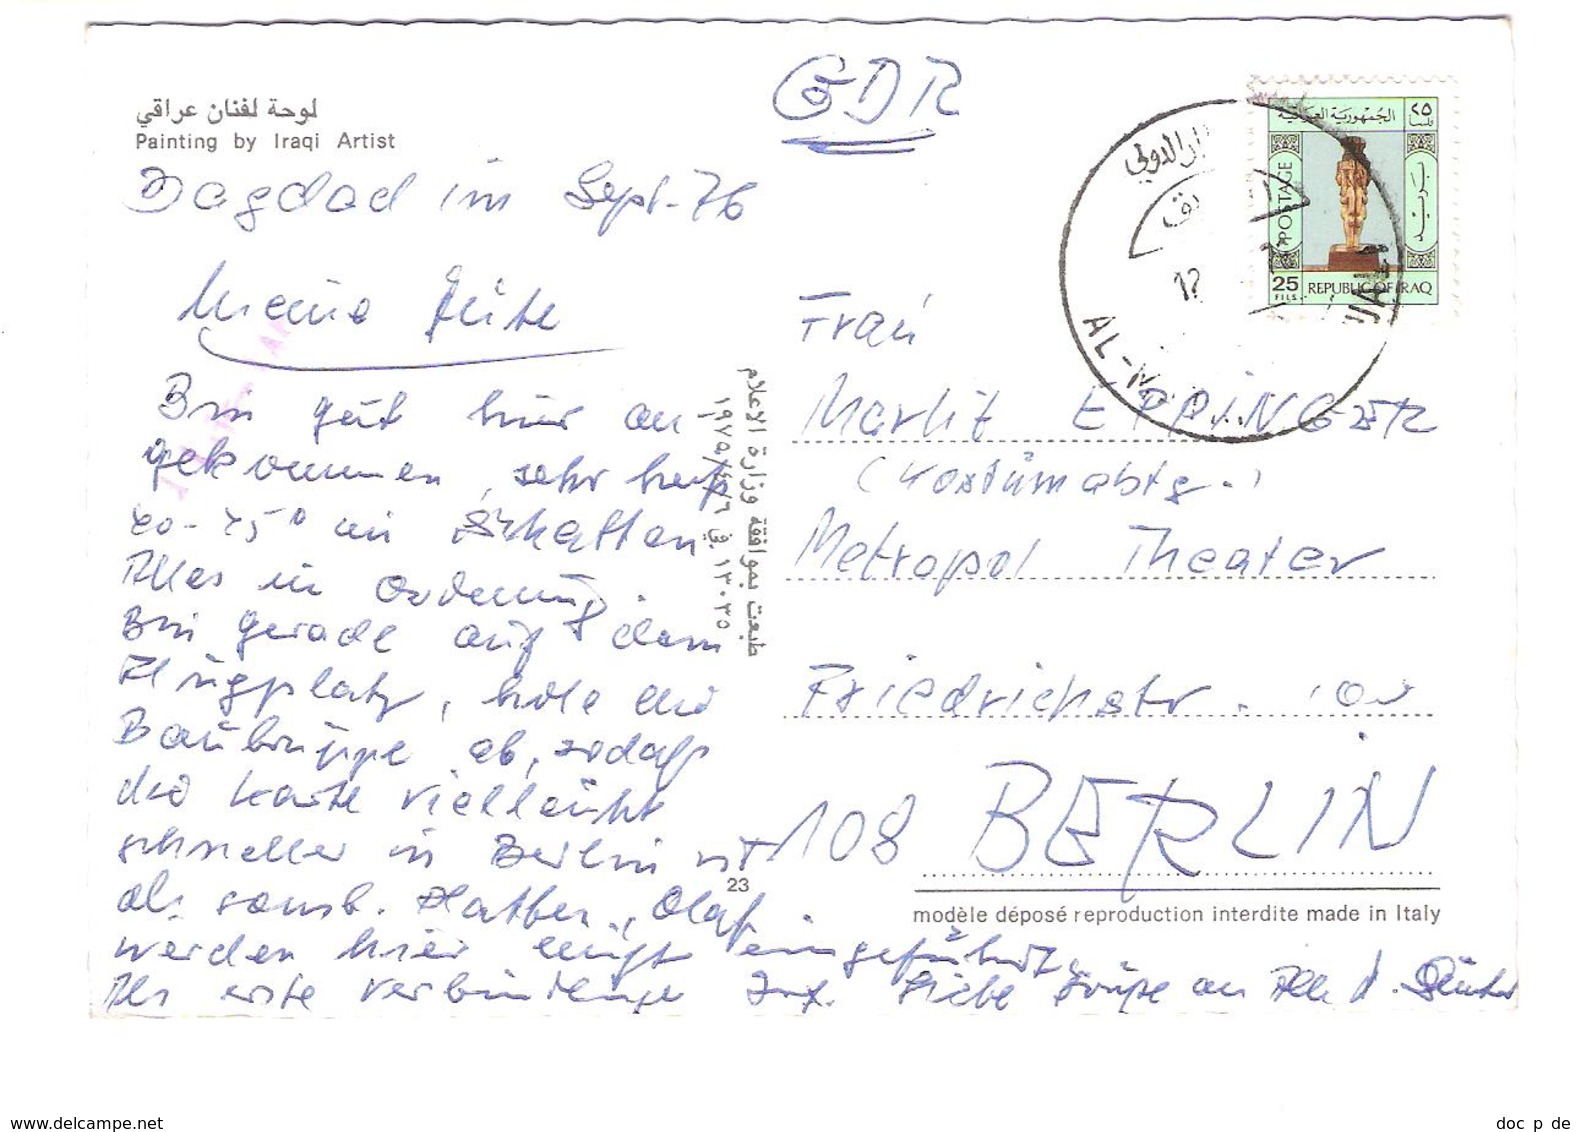 لوحة لفنان عراقي
Painting by Iraqi Artist
GDR
Bagdad im Sept. 76
Meine Gute
Bin gut hier an
gekommen, sehr heiß
40-45° im Schatten
Alles in Ordnung.
Bin gerade auf dem
Flugplatz, hole die
Baugruppe ab, sodaß
die Karte vielleicht
schneller in Berlin ist
als sonst.
werden hier eingeführt.
Als erste
Liebe Grüße an Alle d. Günter
طبعت بموافقة وزارة الاعلام
١٣٠٣٥ في
23
الجمهورية العراقية
٢٥
فلسا
بريد
POSTAGE
25
FILS
REPUBLIC OF IRAQ
الدولي
12
AL-
Frau
Marlit EPPINGER
(Kostümabtg.)
Metropol Theater
Friedrichstr. 101
108 BERLIN
modèle déposé reproduction interdite made in Italy
www.delcampe.net
doc_p_de